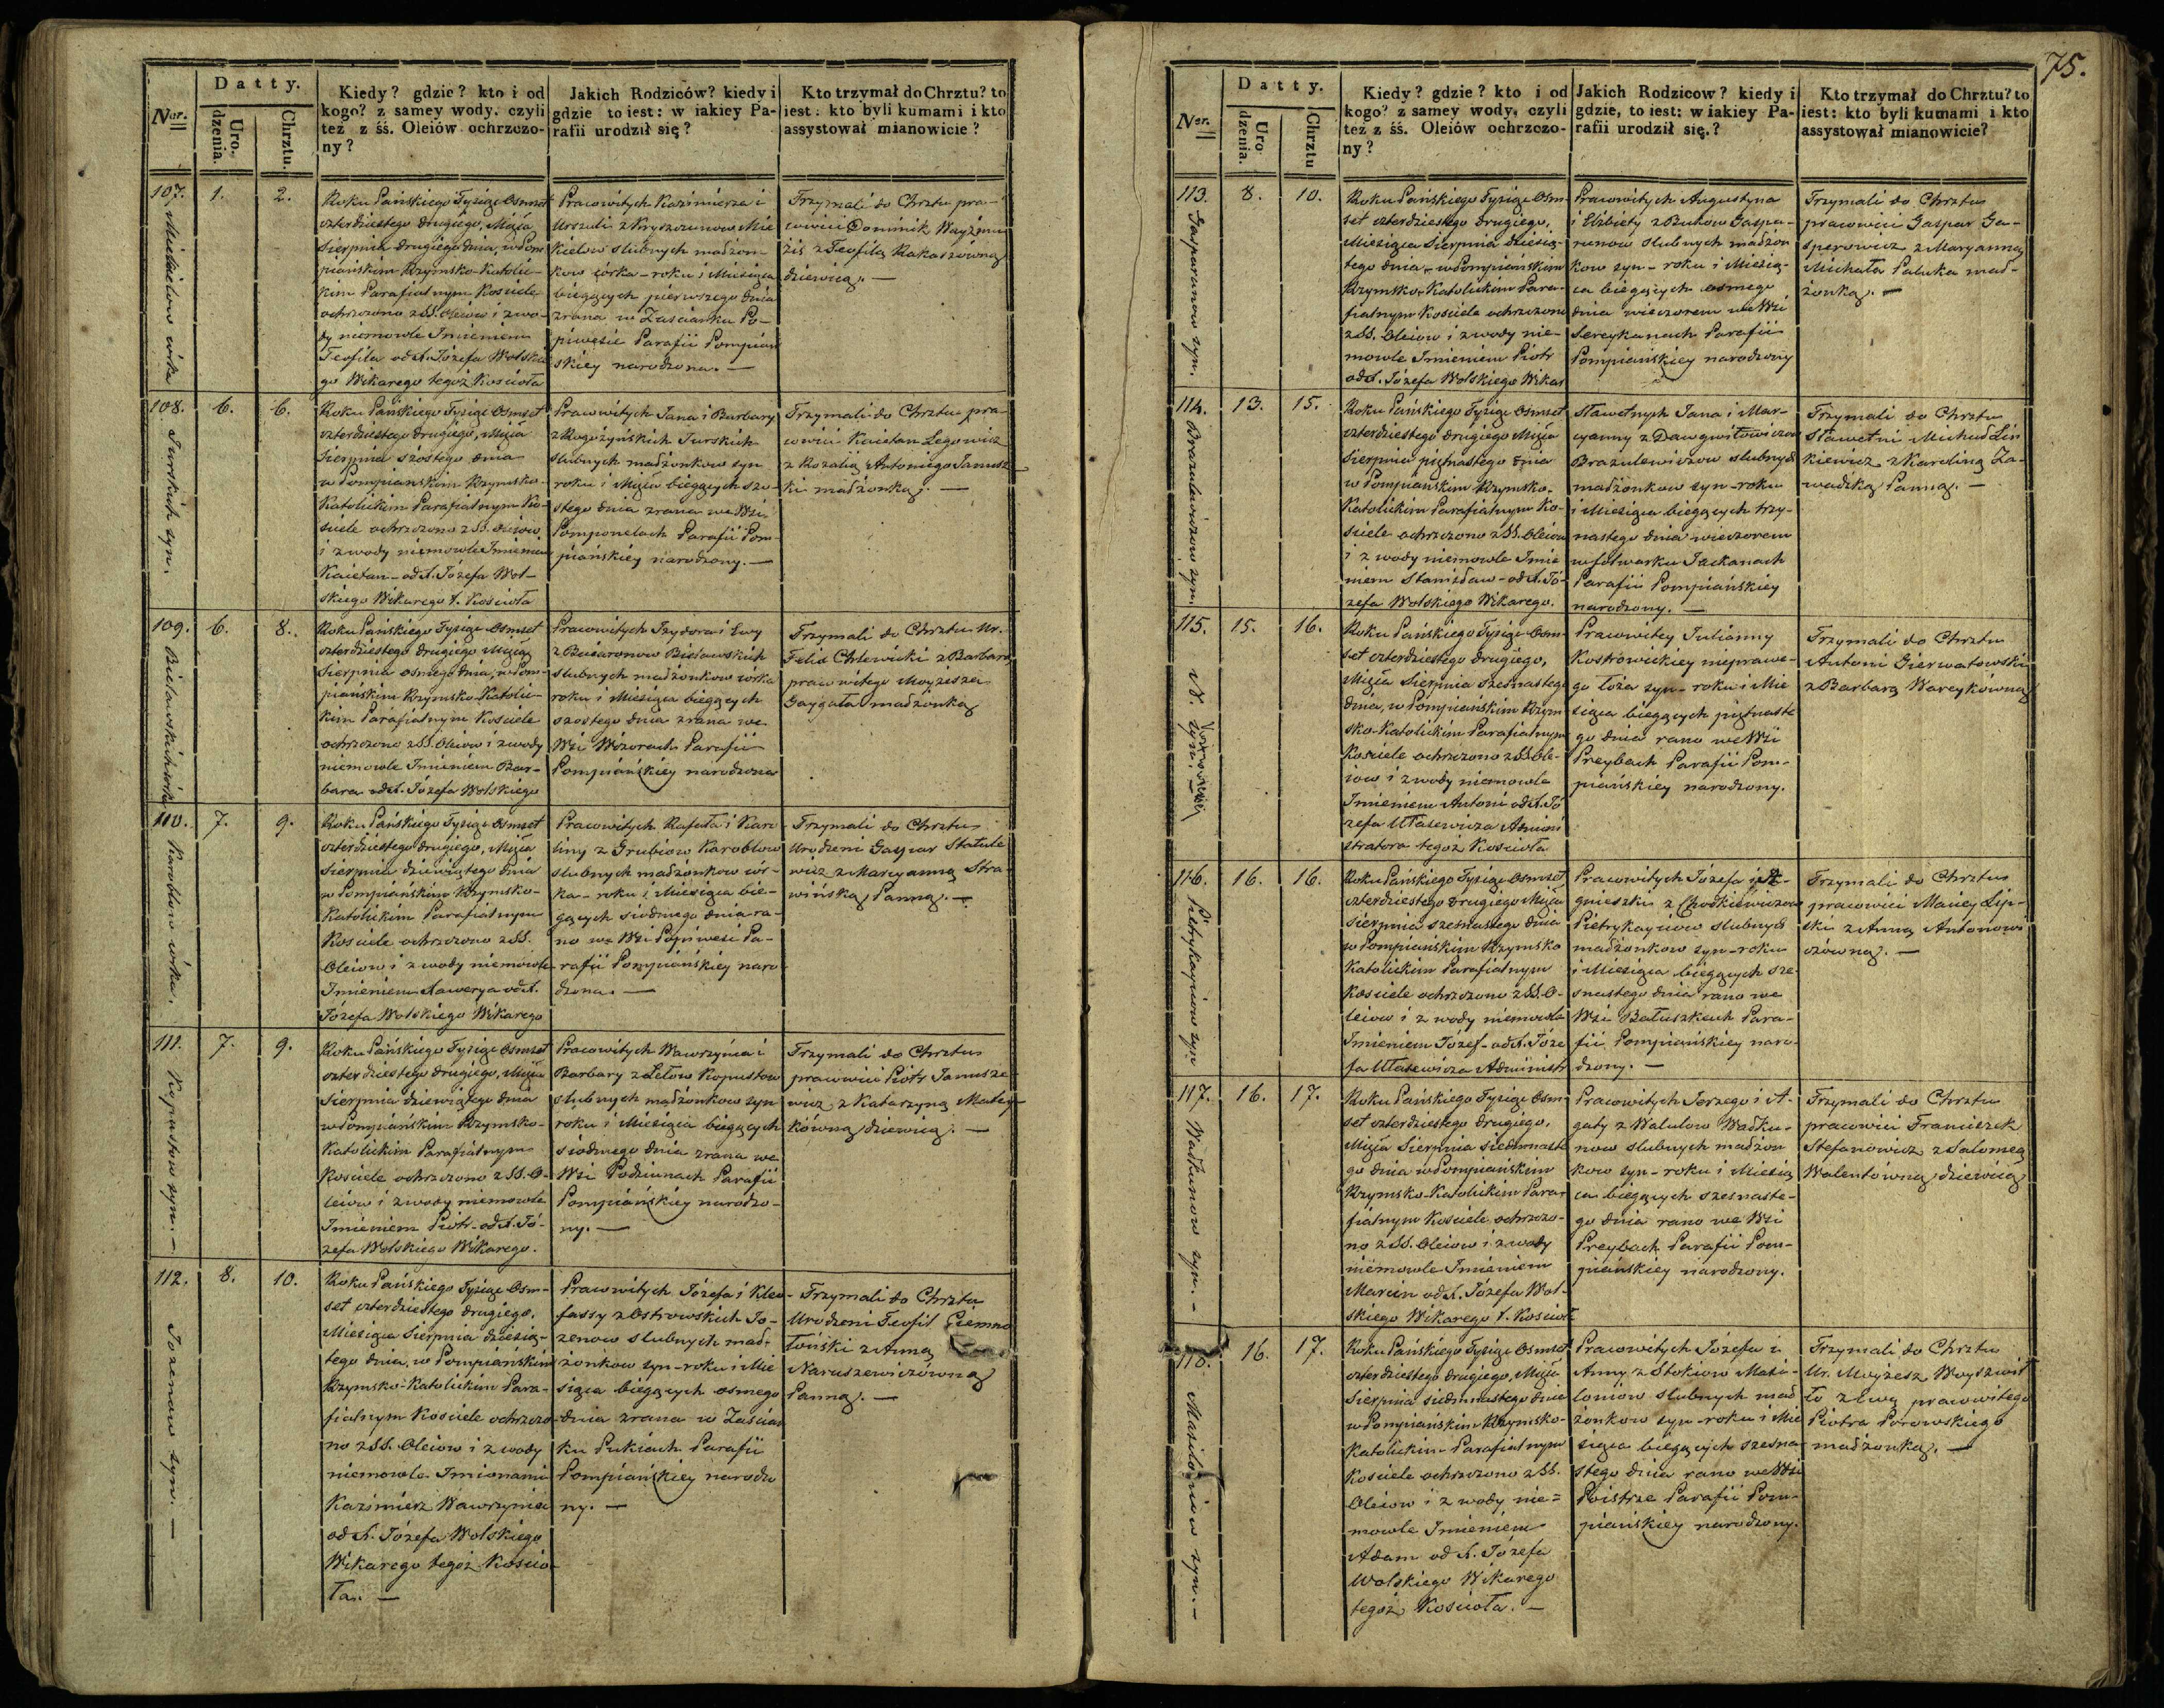 75.
Nur.
Datty.
Uro.
dzenia.
Chrztu.
Kiedy? gdzie? kto i od
kogo? z samey wody, czyli
też z śś. Oleiów ochrzczo-
ny?
Jakich Rodziców? kiedy i
gdzie to iest: w iakiey Pa-
rafii urodził się?
Kto trzymał do Chrztu? to
iest: kto byli kumami i kto
assystował mianowicie?
107.
córka
1.
2.
Roku Pańskiego Tysiąc Osmset
czterdziestego drugiego, Msca
Sierpnia drugiego dnia, w Pom
piańskim Rzymsko-Katolic-
kim Parafialnym Kosciele
ochrzczono z SS. Oleiow i z wo-
dy niemowle Imieniem
Teofila od X. Józefa Wolskie
go Wikarego tegoż Kościoła
Pracowitych Kazimierza i
Urszuli z Kryszczunow Mic
kielow slubnych małżon-
kow córka - roku i Miesiąca
bieżących pierwszego dnia
zrana w Zascianku Po-
piwesie Parafii Pompian
skiey narodzona. —
Trzymali do Chrztu pra-
cowici Dominik
z Teofilą Rakaszówną
dziewicą. —
108.
Jurskich syn.
6.
6.
Roku Pańskiego Tysiąc Osmset
czterdziestego drugiego, Msca
Sierpnia szostego dnia
w Pompianskim Rzymsko-
Katolickim Parafialnym Ko-
sciele ochrzczono z SS. Oleiow
i z wody niemowle Imieniem
Kaietan - od X. Józefa Wol-
skiego Wikarego t. Kościoła
Pracowitych Jana i Barbary
z Rogożyńskich Jurskich
slubnych małżonkow syn
roku i Msca bieżących szo-
stego dnia zrana we Wsi
Pomponelach Parafii Pom-
piańskiey narodzony. —
Trzymali do Chrztu pra-
cowici Kaietan Legowicz
z Rozalią Antoniego Janusz
ki małżonką. —
109.
Bielawskich córka
6.
8.
Roku Pańskiego Tysiąc Osmset
czterdziestego drugiego Msca
Sierpnia osmego dnia, w Pom-
piańskim Rzymsko-Katolic-
kim Parafialnym Kosciele
ochrzczono z SS. Oleiow i z wody
niemowle Imieniem Bar-
bara od X. Józefa Wolskiego
Pracowitych Izydora i Ewy
z Bielawskich
slubnych małżonkow córka
roku i Miesiąca bieżących
szostego dnia zrana we
Wsi Wizorach Parafii
Pompiańskiey narodzona
Trzymali do Chrztu Ur.
Felix Chlewicki z Barbarą
pracowitego Moyżesza
Gaygała małżonką
110.
Karablow córka.
7.
9.
Roku Pańskiego Tysiąc Osmset
czterdziestego drugiego, Msca
Sierpnia dziewiątego dnia
w Pompiańskim Rzymsko-
Katolickim Parafialnym
Kosciele ochrzczono z SS.
Oleiow i z wody niemowle
Imieniem Xawerya od X.
Józefa Wolskiego Wikarego
Pracowitych Rafała i Karo
liny z Grubiow Karoblow
slubnych małżonkow cór-
ka - roku i Miesiąca bie-
żących siodmego dnia ra-
no we Wsi Popiwesi Pa-
rafii Pompiańskiey naro
dzona. —
Trzymali do Chrztu
Urodzeni Gaspar Statule
wicz z Maryanną Stra-
wińską Panną. —
111.
Kopustow syn. —
7.
9.
Roku Pańskiego Tysiąc Osmset
czterdziestego drugiego, Msca
Sierpnia dziewiątego dnia
w Pompiańskim Rzymsko-
Katolickim Parafialnym
Kosciele ochrzczono z SS. O-
leiow i z wody niemowle
Imieniem Piotr - od X. Jó-
zefa Wolskiego Wikarego.
Pracowitych Wawrzyńca i
Barbary z Letow Kopustow
slubnych małżonkow syn
roku i Miesiąca bieżących
siodmego dnia zrana we
Wsi Podziunach Parafii
Pompiańskiey narodzo-
ny. —
Trzymali do Chrztu
pracowici Piotr Janusze
wicz z Katarzyną Matey-
kówną dziewicą. —
112.
Jozenow syn. —
8.
10.
Roku Pańskiego Tysiąc Osm-
set czterdziestego drugiego,
Miesiąca Sierpnia dziesią-
tego dnia, w Pompiańskim
Rzymsko-Katolickim Para-
fialnym Kosciele ochrzczo-
no z SS. Oleiow i z wody
niemowle Imionami
Kazimierz Wawrzyniec
od X. Józefa Wolskiego
Wikarego tegoż Koscio-
ła. —
Pracowitych Józefa i Kleo-
fassy z Ostrowskich Jo-
zenow slubnych mał-
żonkow syn - roku i Mie
siąca bieżących osmego
dnia zrana w Zascian
ku Pukiach Parafii
Pompiańskiey narodzo
ny. —
Trzymali do Chrztu
Urodzeni Teofil Ciemno
łoński z Anną
Naruszewiczówną
Panną. —
Ner.
Datty.
Uro
dzenia.
Chrztu
Kiedy? gdzie? kto i od
kogo? z samey wody, czyli
też z śś. Oleiów ochrzczo-
ny?
Jakich Rodzicow? kiedy i
gdzie, to iest: w iakiey Pa-
rafii urodził się.?
Kto trzymał do Chrztu? to
iest: kto byli kumami i kto
assystował mianowicie?
113.
Gasparunow syn.
8.
10.
Roku Pańskiego Tysiąc Osm-
set czterdziestego drugiego,
Miesiąca Sierpnia dziesią-
tego dnia, w Pompiańskim
Rzymsko-Katolickim Para-
fialnym Kosciele ochrzczono
z SS. Oleiow i z wody nie-
mowle Imieniem Piotr
od X. Józefa Wolskiego Wikar
Pracowitych Augustyna
i Elżbiety z Bukow Gaspa-
runow slubnych małżon
kow syn - roku i Miesią-
ca bieżących osmego
dnia wieczorem we Wsi
Sereykanach Parafii
Pompiańskiey narodzony
Trzymali do Chrztu
pracowici Gaspar Ga-
sperowicz z Maryanną
Michała Paluka mał-
żonką. —
114.
Brazulewiczow syn.
13.
15.
Roku Pańskiego Tysiąc Osmset
czterdziestego drugiego Msca
Sierpnia piętnastego dnia
w Pompiańskim Rzymsko-
Katolickim Parafialnym Ko-
sciele ochrzczono z SS. Oleiow
i z wody niemowle Imie
niem Stanisław - od X. Jó-
zefa Wolskiego Wikarego.
Sławetnych Jana i Mar-
yanny z Dawgwiłowiczow
Brazulewiczow slubnych
małżonkow syn - roku
i Miesiąca bieżących trzy-
nastego dnia wieczorem
w folwarku Jackanach
Parafii Pompiańskiey
narodzony. —
Trzymali do Chrztu
Sławetni Michał Lin
kiewicz z Karoliną Za-
wadzką Panną. —
115.
N.
syn. —
15.
16.
Roku Pańskiego Tysiąc Osm-
set czterdziestego drugiego,
Msca Sierpnia szesnastego
dnia, w Pompiańskim Rzym-
sko-Katolickim Parafialnym
Kosciele ochrzczono z SS. Ole-
iow i z wody niemowle
Imieniem Antoni od X. Jó
zefa Ułasewicza Admini
stratora tegoż Kościoła
Pracowitey Julianny
Kostrowickiey nieprawe-
go łoża syn - roku i Mie
siąca bieżących piętnaste
go dnia rano we Wsi
Preybach Parafii Pom-
piańskiey narodzony.
Trzymali do Chrztu
Antoni Gierwatowski
z Barbarą Wareykówną
116.
Pietrykayciow syn
16.
16.
Roku Pańskiego Tysiąc Osmset
czterdziestego drugiego Msca
Sierpnia szesnastego dnia
w Pompiańskim Rzymsko
Katolickim Parafialnym
Kosciele ochrzczono z SS. O-
leiow i z wody niemowle
Imieniem Józef - od X. Józe
fa Ułasewicza Administr
Pracowitych Józefa i A-
gnieszki z Chodkiewiczow
slubnych
małżonkow syn - roku
i Miesiąca bieżących sze-
snastego dnia rano we
Wsi Bałuszkach Para-
fii Pompiańskiey naro-
dzony. —
Trzymali do Chrztu
pracowici Maciey Lip-
ski z Anną Antonowi
czówną. —
117.
Wadkunow syn. —
16.
17.
Roku Pańskiego Tysiąc Osm-
set czterdziestego drugiego,
Msca Sierpnia siedmnaste
go dnia w Pompiańskim
Rzymsko-Katolickim Para-
fialnym Kosciele ochrzczo-
no z SS. Oleiow i z wody
niemowle Imieniem
Marcin od X. Józefa Wol-
skiego Wikarego t. Kościoła
Pracowitych Jerzego i A-
gaty z Walulow Wadku-
now slubnych małżon
kow syn - roku i Miesią
ca bieżących szesnaste-
go dnia rano we Wsi
Preybach Parafii Pom-
piańskiey narodzony.
Trzymali do Chrztu
pracowici Franciszek
Stefanowicz z Salomeą
Walentówną dziewicą
118.
Masiloniow syn. —
16.
17.
Roku Pańskiego Tysiąc Osmset
czterdziestego drugiego, Msca
Sierpnia siedmnastego dnia
w Pompiańskim Rzymsko-
Katolickim Parafialnym
Kosciele ochrzczono z SS.
Oleiow i z wody nie=
mowle Imieniem
Adam od X. Józefa
Wolskiego Wikarego
tegoż Kościoła. —
Pracowitych Józefa i
Anny z Stokiow Masi-
loniow slubnych mał
żonkow syn - roku i Mie
siąca bieżących szesna-
stego dnia rano we Wsi
Poistrze Parafii Pom-
piańskiey narodzony.
Trzymali do Chrztu
Ur. Moyżesz Woyszwił
ło z Ewą pracowitego
Piotra Porowskiego
małżonką. —